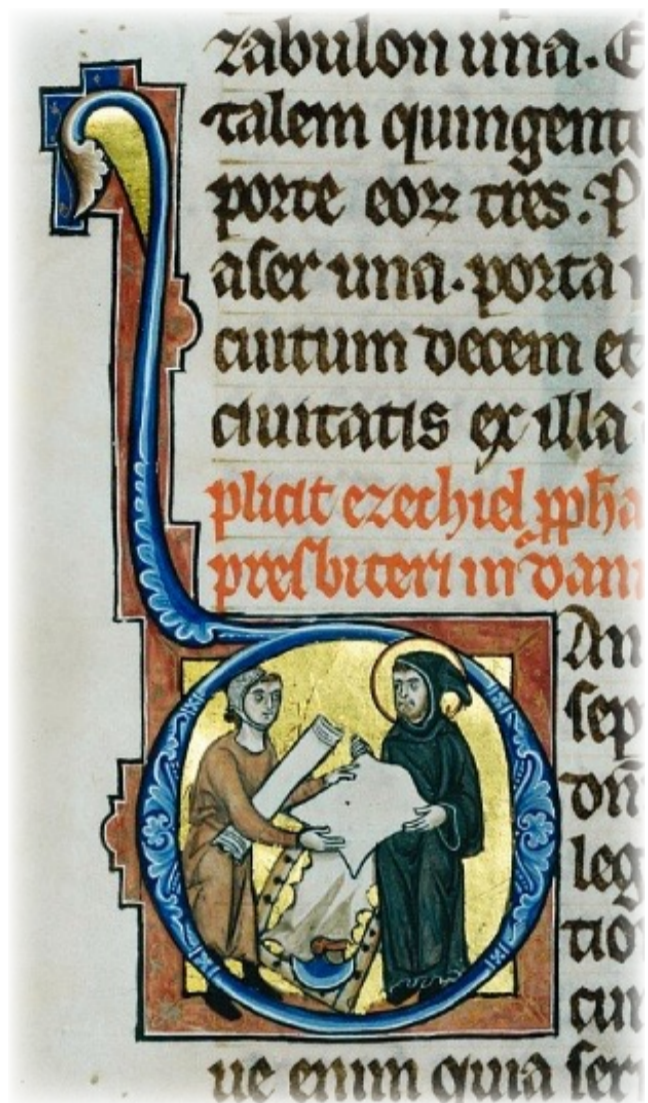 zabulon una. E
talem quingente
porte eoꝝ tres. P
aser una. porta
cuitum decem et
ciuitatis ex illa
plicit ezechiel ꝓph̄a
presbiteri in dani
An
sep
dn̄
leg
tio
cur
ue enim quia ser